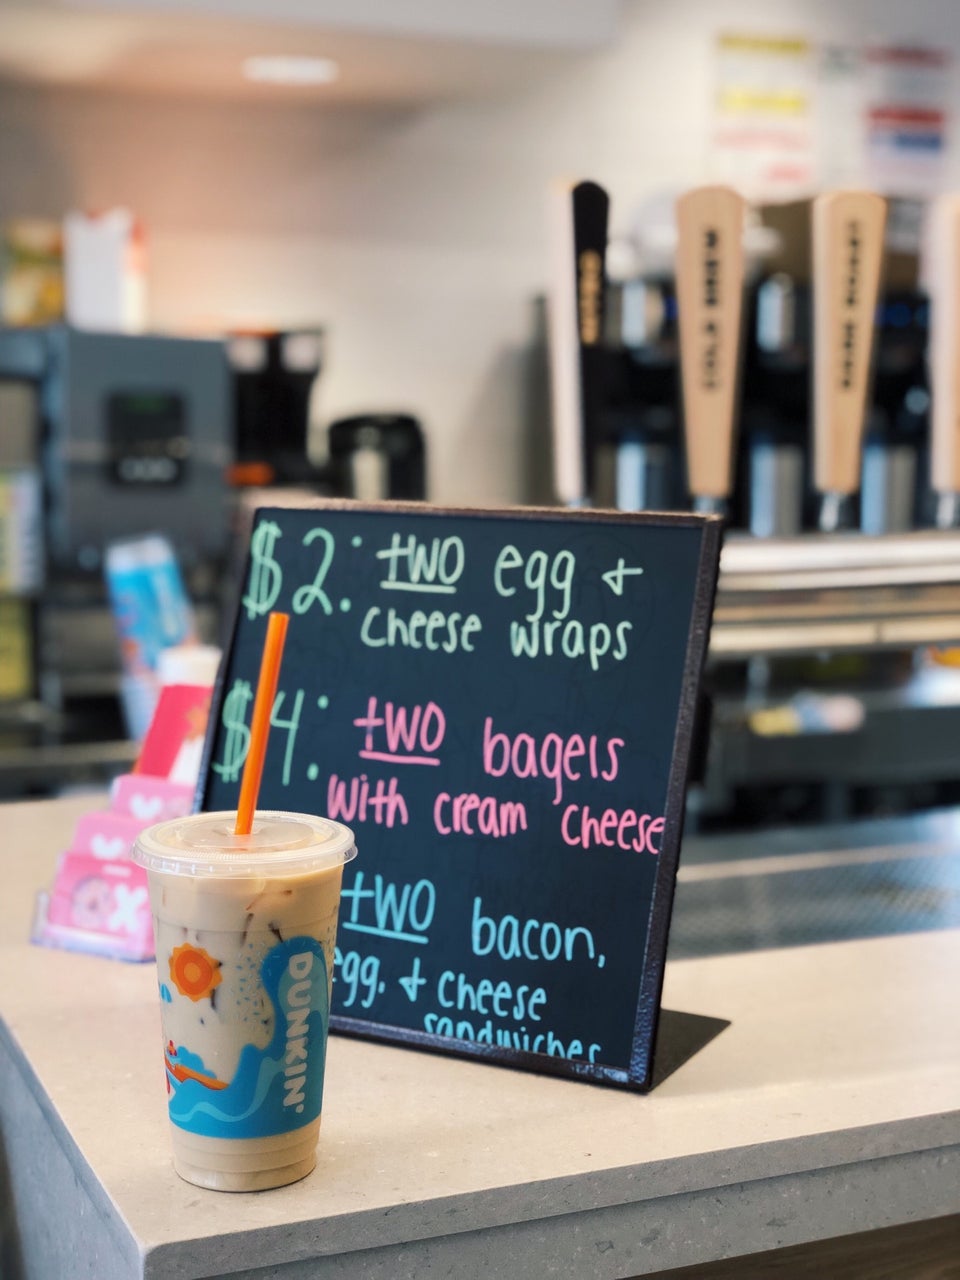 $2: two egg +
cheese wraps
$4: two bagels
with cream cheese
two bacon,
egg, + cheese
sandwiches
DUNKIN'